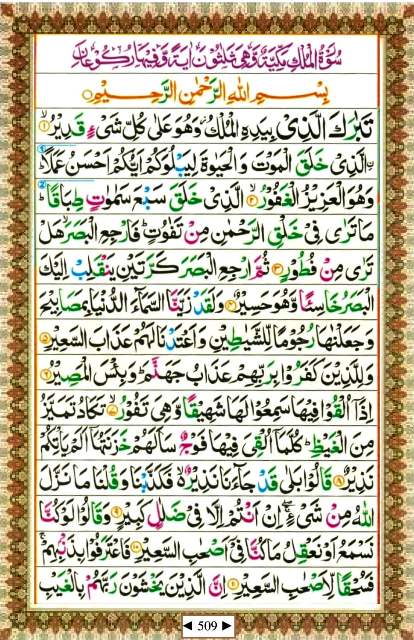 سُوْرَةُ الْمُلْكِ مَكِّيَّةٌ وَّهِيَ ثَلٰثُوْنَ اٰيَةً وَّفِيْهَا رُكُوْعَانِ
بِسْمِ اللهِ الرَّحْمٰنِ الرَّحِيْمِ
تَبٰرَكَ الَّذِىْ بِيَدِهِ الْمُلْكُ وَهُوَ عَلٰى كُلِّ شَىْءٍ قَدِيْرُ ۙ﴿۱﴾
ۨالَّذِىْ خَلَقَ الْمَوْتَ وَالْحَيٰوةَ لِيَبْلُوَكُمْ اَيُّكُمْ اَحْسَنُ عَمَلًا ؕ
وَهُوَ الْعَزِيْزُ الْغَفُوْرُ ۙ﴿۲﴾ الَّذِىْ خَلَقَ سَبْعَ سَمٰوٰتٍ طِبَاقًا ؕ
مَا تَرٰى فِىْ خَلْقِ الرَّحْمٰنِ مِنْ تَفٰوُتٍ ؕ فَارْجِعِ الْبَصَرَ ۙ هَلْ
تَرٰى مِنْ فُطُوْرٍ ﴿۳﴾ ثُمَّ ارْجِعِ الْبَصَرَ كَرَّتَيْنِ يَنْقَلِبْ اِلَيْكَ
الْبَصَرُ خَاسِئًا وَّهُوَ حَسِيْرٌ ﴿۴﴾ وَلَقَدْ زَيَّنَّا السَّمَآءَ الدُّنْيَا بِمَصَابِيْحَ
وَجَعَلْنٰهَا رُجُوْمًا لِّلشَّيٰطِيْنِ وَاَعْتَدْنَا لَهُمْ عَذَابَ السَّعِيْرِ ﴿۵﴾
وَلِلَّذِيْنَ كَفَرُوْا بِرَبِّهِمْ عَذَابُ جَهَنَّمَ ؕ وَبِئْسَ الْمَصِيْرُ ﴿۶﴾
اِذَاۤ اُلْقُوْا فِيْهَا سَمِعُوْا لَهَا شَهِيْقًا وَّهِىَ تَفُوْرُ ۙ﴿۷﴾ تَكَادُ تَمَيَّزُ
مِنَ الْغَيْظِ ؕ كُلَّمَاۤ اُلْقِىَ فِيْهَا فَوْجٌ سَاَلَهُمْ خَزَنَتُهَاۤ اَلَمْ يَاْتِكُمْ
نَذِيْرٌ ﴿۸﴾ قَالُوْا بَلٰى قَدْ جَآءَنَا نَذِيْرٌ ۙ فَكَذَّبْنَا وَقُلْنَا مَا نَزَّلَ
اللهُ مِنْ شَىْءٍ ۚ اِنْ اَنْتُمْ اِلَّا فِىْ ضَلٰلٍ كَبِيْرٍ ﴿۹﴾ وَقَالُوْا لَوْ كُنَّا
نَسْمَعُ اَوْ نَعْقِلُ مَا كُنَّا فِىْۤ اَصْحٰبِ السَّعِيْرِ ﴿۱۰﴾ فَاعْتَرَفُوْا بِذَنْۢبِهِمْ ۚ
فَسُحْقًا لِّاَصْحٰبِ السَّعِيْرِ ﴿۱۱﴾ اِنَّ الَّذِيْنَ يَخْشَوْنَ رَبَّهُمْ بِالْغَيْبِ
◄ 509 ►